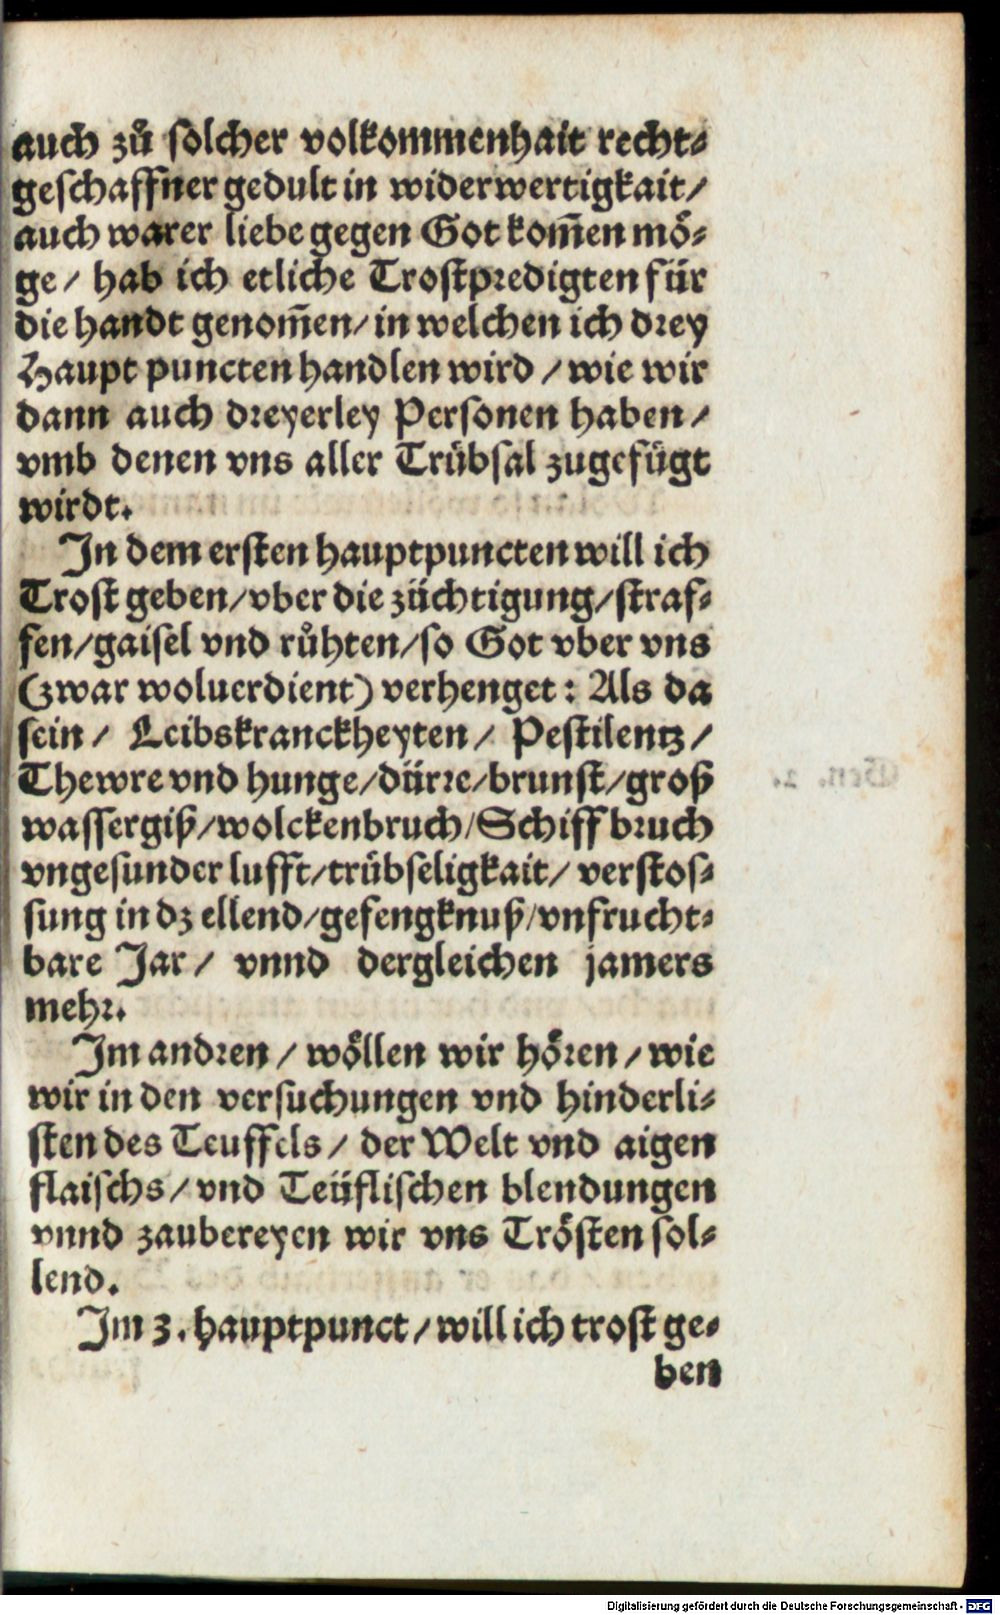 auch zů solcher volkommenhait recht⸗
geschaffner gedult in widerwertigkait/
auch warer liebe gegen Got kom̃en mö⸗
ge/ hab ich etliche Trostpredigten für
die handt genom̃en/ in welchen ich drey
Haupt puncten handlen wird/ wie wir
dann auch dreyerley Personen haben/
vmb denen vns aller Trübsal zugefügt
wirdt.
In dem ersten hauptpuncten will ich
Trost geben/ vber die züchtigung/ straf⸗
fen/ gaisel vnd růhten/ so Got vber vns
(zwar woluerdient) verhenget: Als da
sein/ Leibskranckheyten/ Pestilentz/
Thewre vnd hunge/ dürre/ brunst/ groß
wassergiß/ wolckenbruch/ Schiffbruch
vngesunder lufft/ trübseligkait/ verstos⸗
sung in dz ellend/ gefengknuß/ vnfrucht⸗
bare Jar/ vnnd dergleichen jamers
mehr.
Im andren/ wöllen wir hören/ wie
wir in den versuchungen vnd hinderli⸗
sten des Teuffels/ der Welt vnd aigen
flaischs/ vnd Teüflischen blendungen
vnnd zaubereyen wir vns Trösten sol⸗
lend.
Im 3. hauptpunct/ will ich trost ge⸗
ben
Digitalisierung gefördert durch die Deutsche Forschungsgemeinschaft - DFG